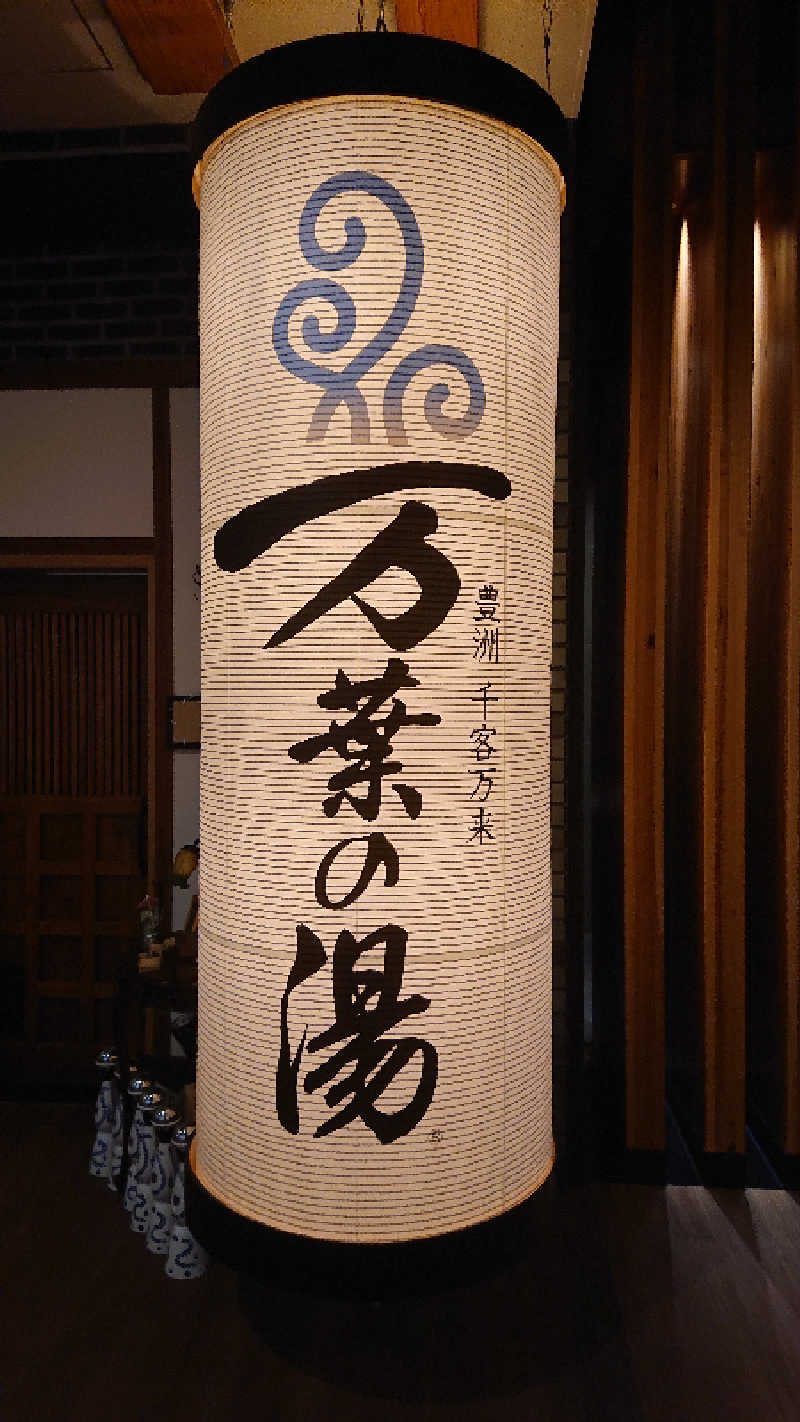 万葉の湯
豊洲 千客万来